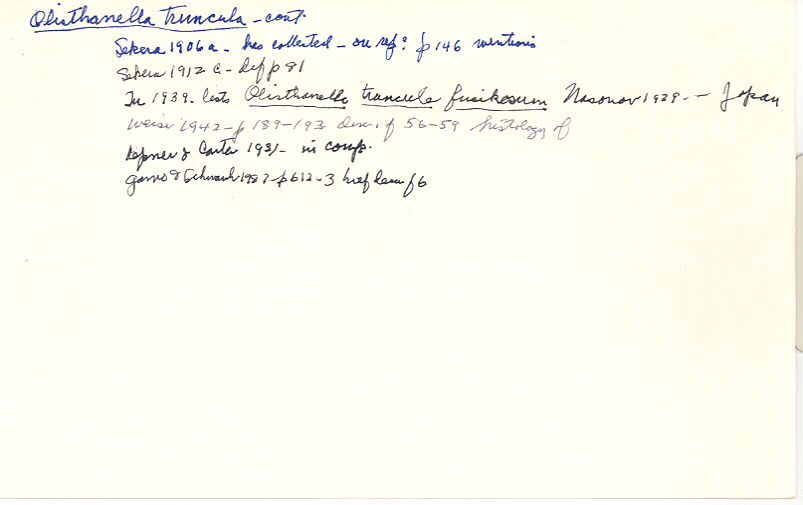 Olisthanella truncula - cont.
Sekera 1906a - has collected - on ref? p 146 mentions
Sekera 1912 c - def p 81
In 1939 - lists Olisthanella truncula fusikosum Nasonov 1929 - - Japan
Weise 1942 - p 189-193 descr. f 56-59 histology of
Kepner & Carter 1931 - in comp.
& Schwank 1987 - p 612-3 brief descr f 6